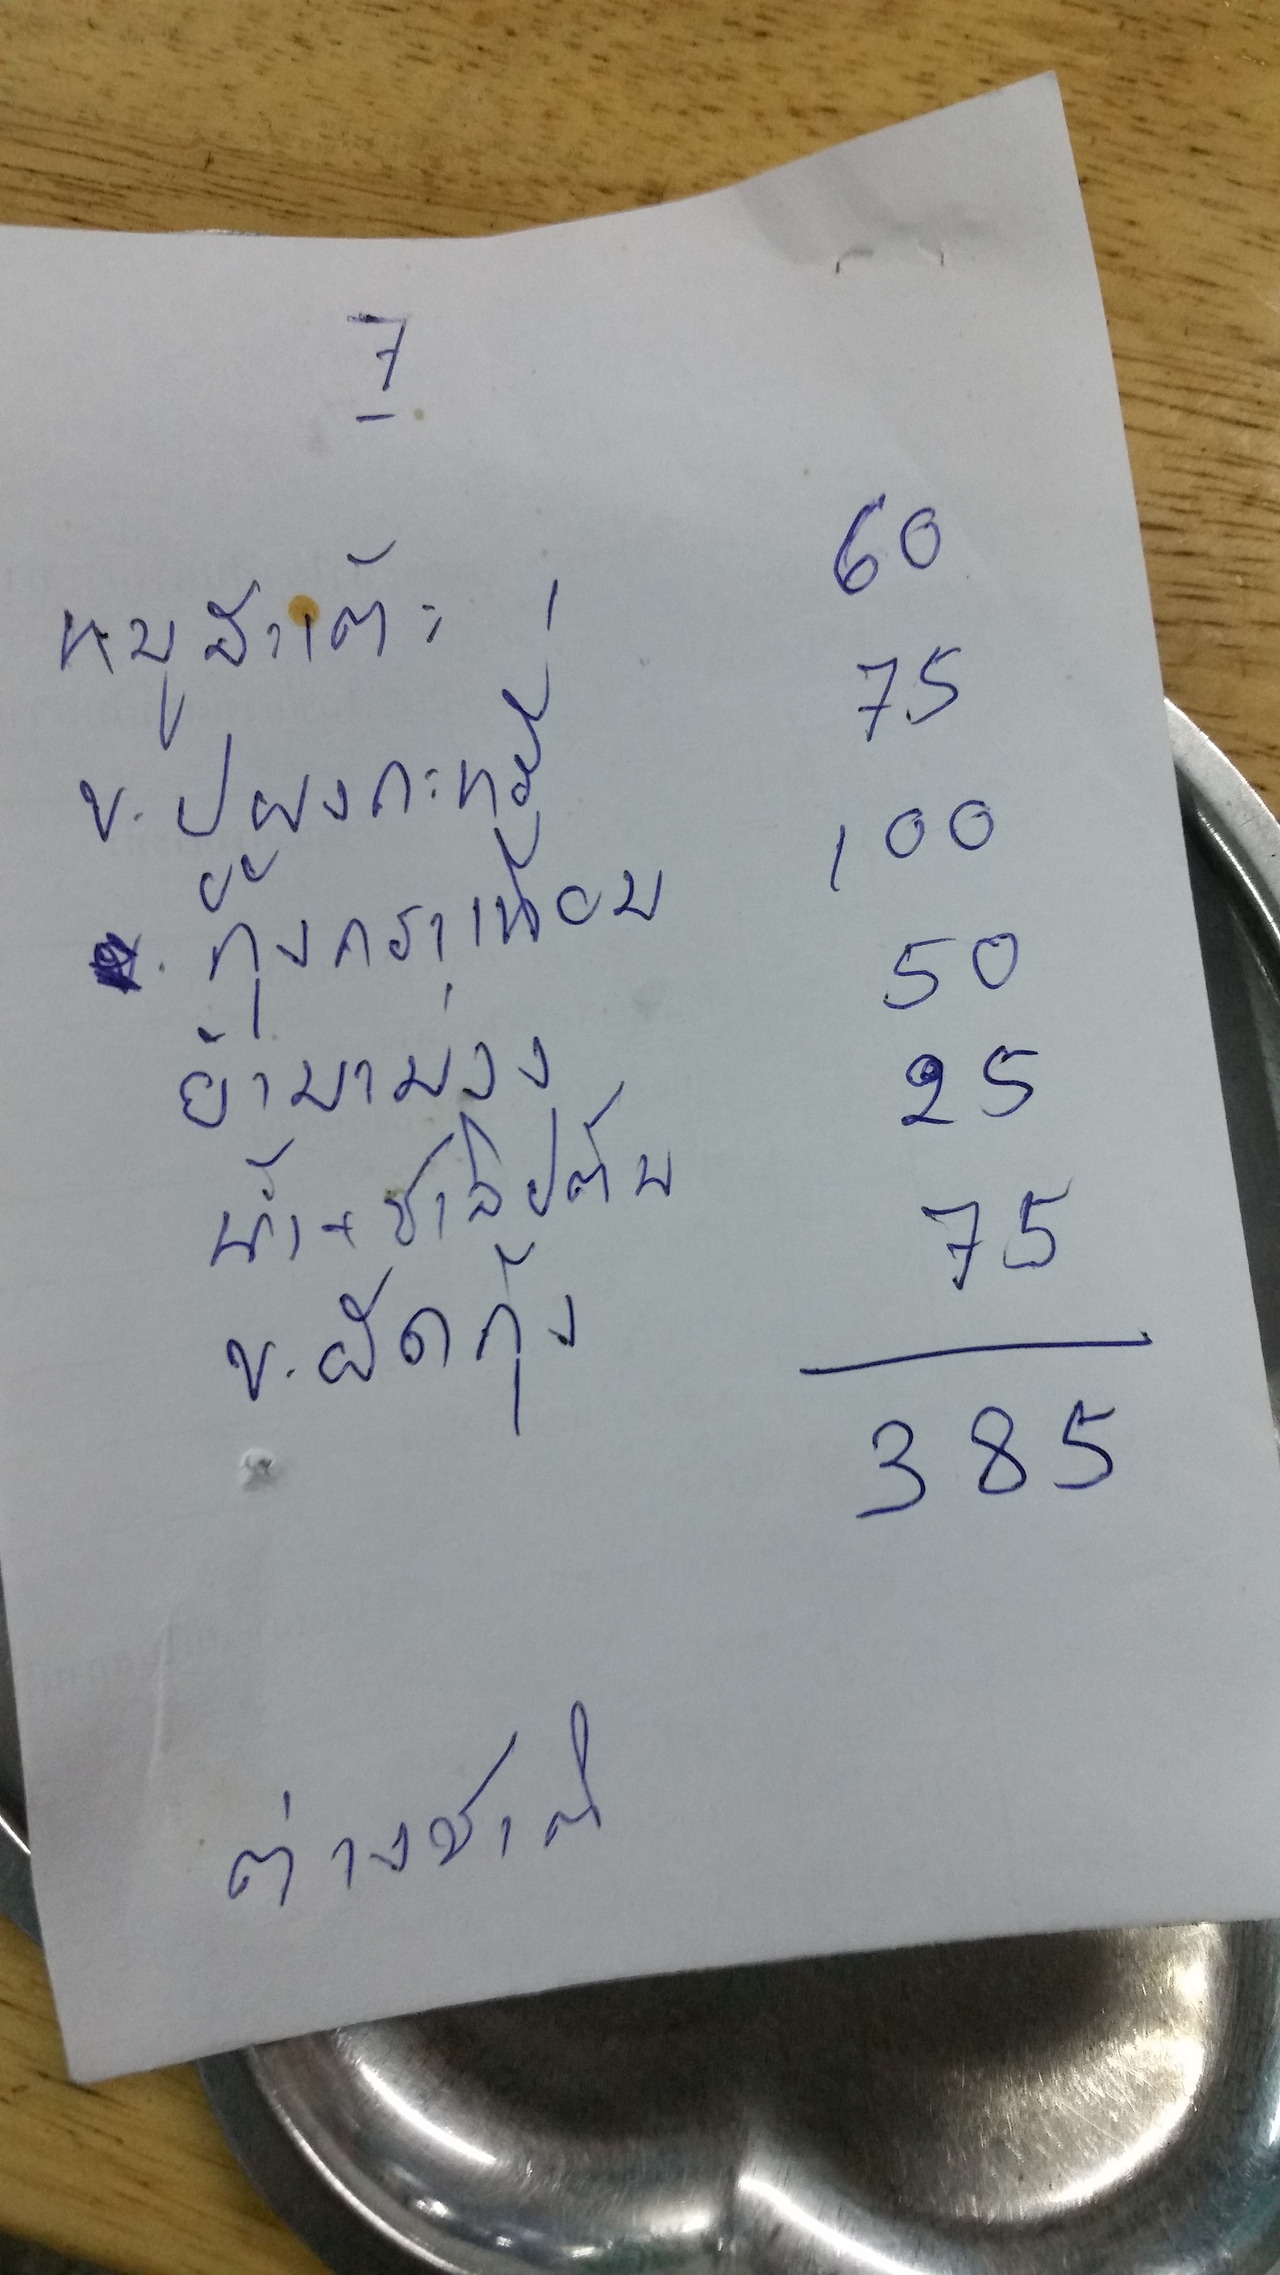 7
หมูสะเต๊ะ 60
ข. ปูผงกะหรี่ 75
กุ้งกระเทียม 100
ยำมาม่วง 50
น้ำ + ชาลิปตัน 25
ข. ผัดกุ้ง 75
385
ต่างชาติ